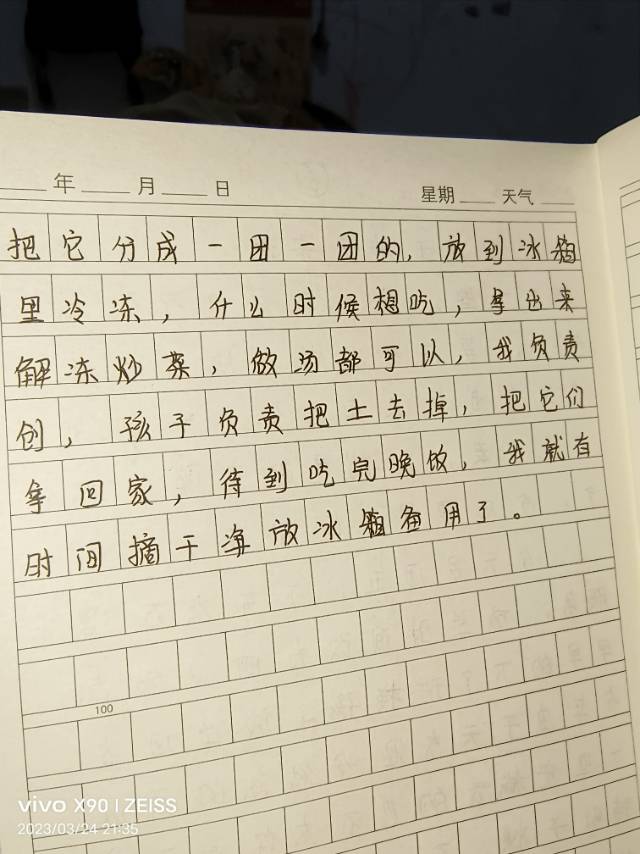 年 月 日 星期 天气
把它分成一团一团的，放到冰箱
里冷冻，什么时候想吃，拿出来
解冻炒菜，做汤都可以，我负责
创，孩子负责把土去掉，把它们
拿回家，待到吃完晚饭，我就有
时间摘干净放冰箱备用了。
100
vivo X90 | ZEISS
2023/03/24 21:35